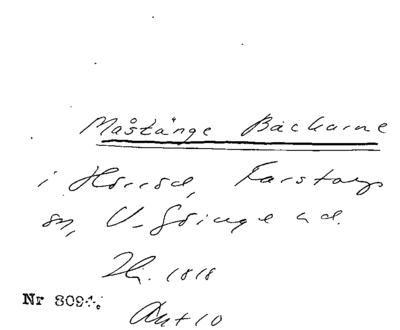 Måstänge Bäckarne
i Hörröd, Farstorps
sn, V. Göinge hd.
1818
Nr 8094.
Ant 10